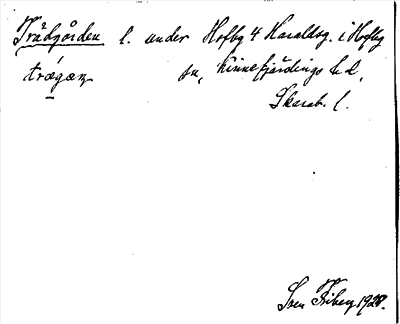 Trädgården l. under Hofby 4 Haraldsg. i Hofby
trǽgæṇ sn, Kinnefjärdings hd,
Skarab. l.
Sven Friberg 1928.